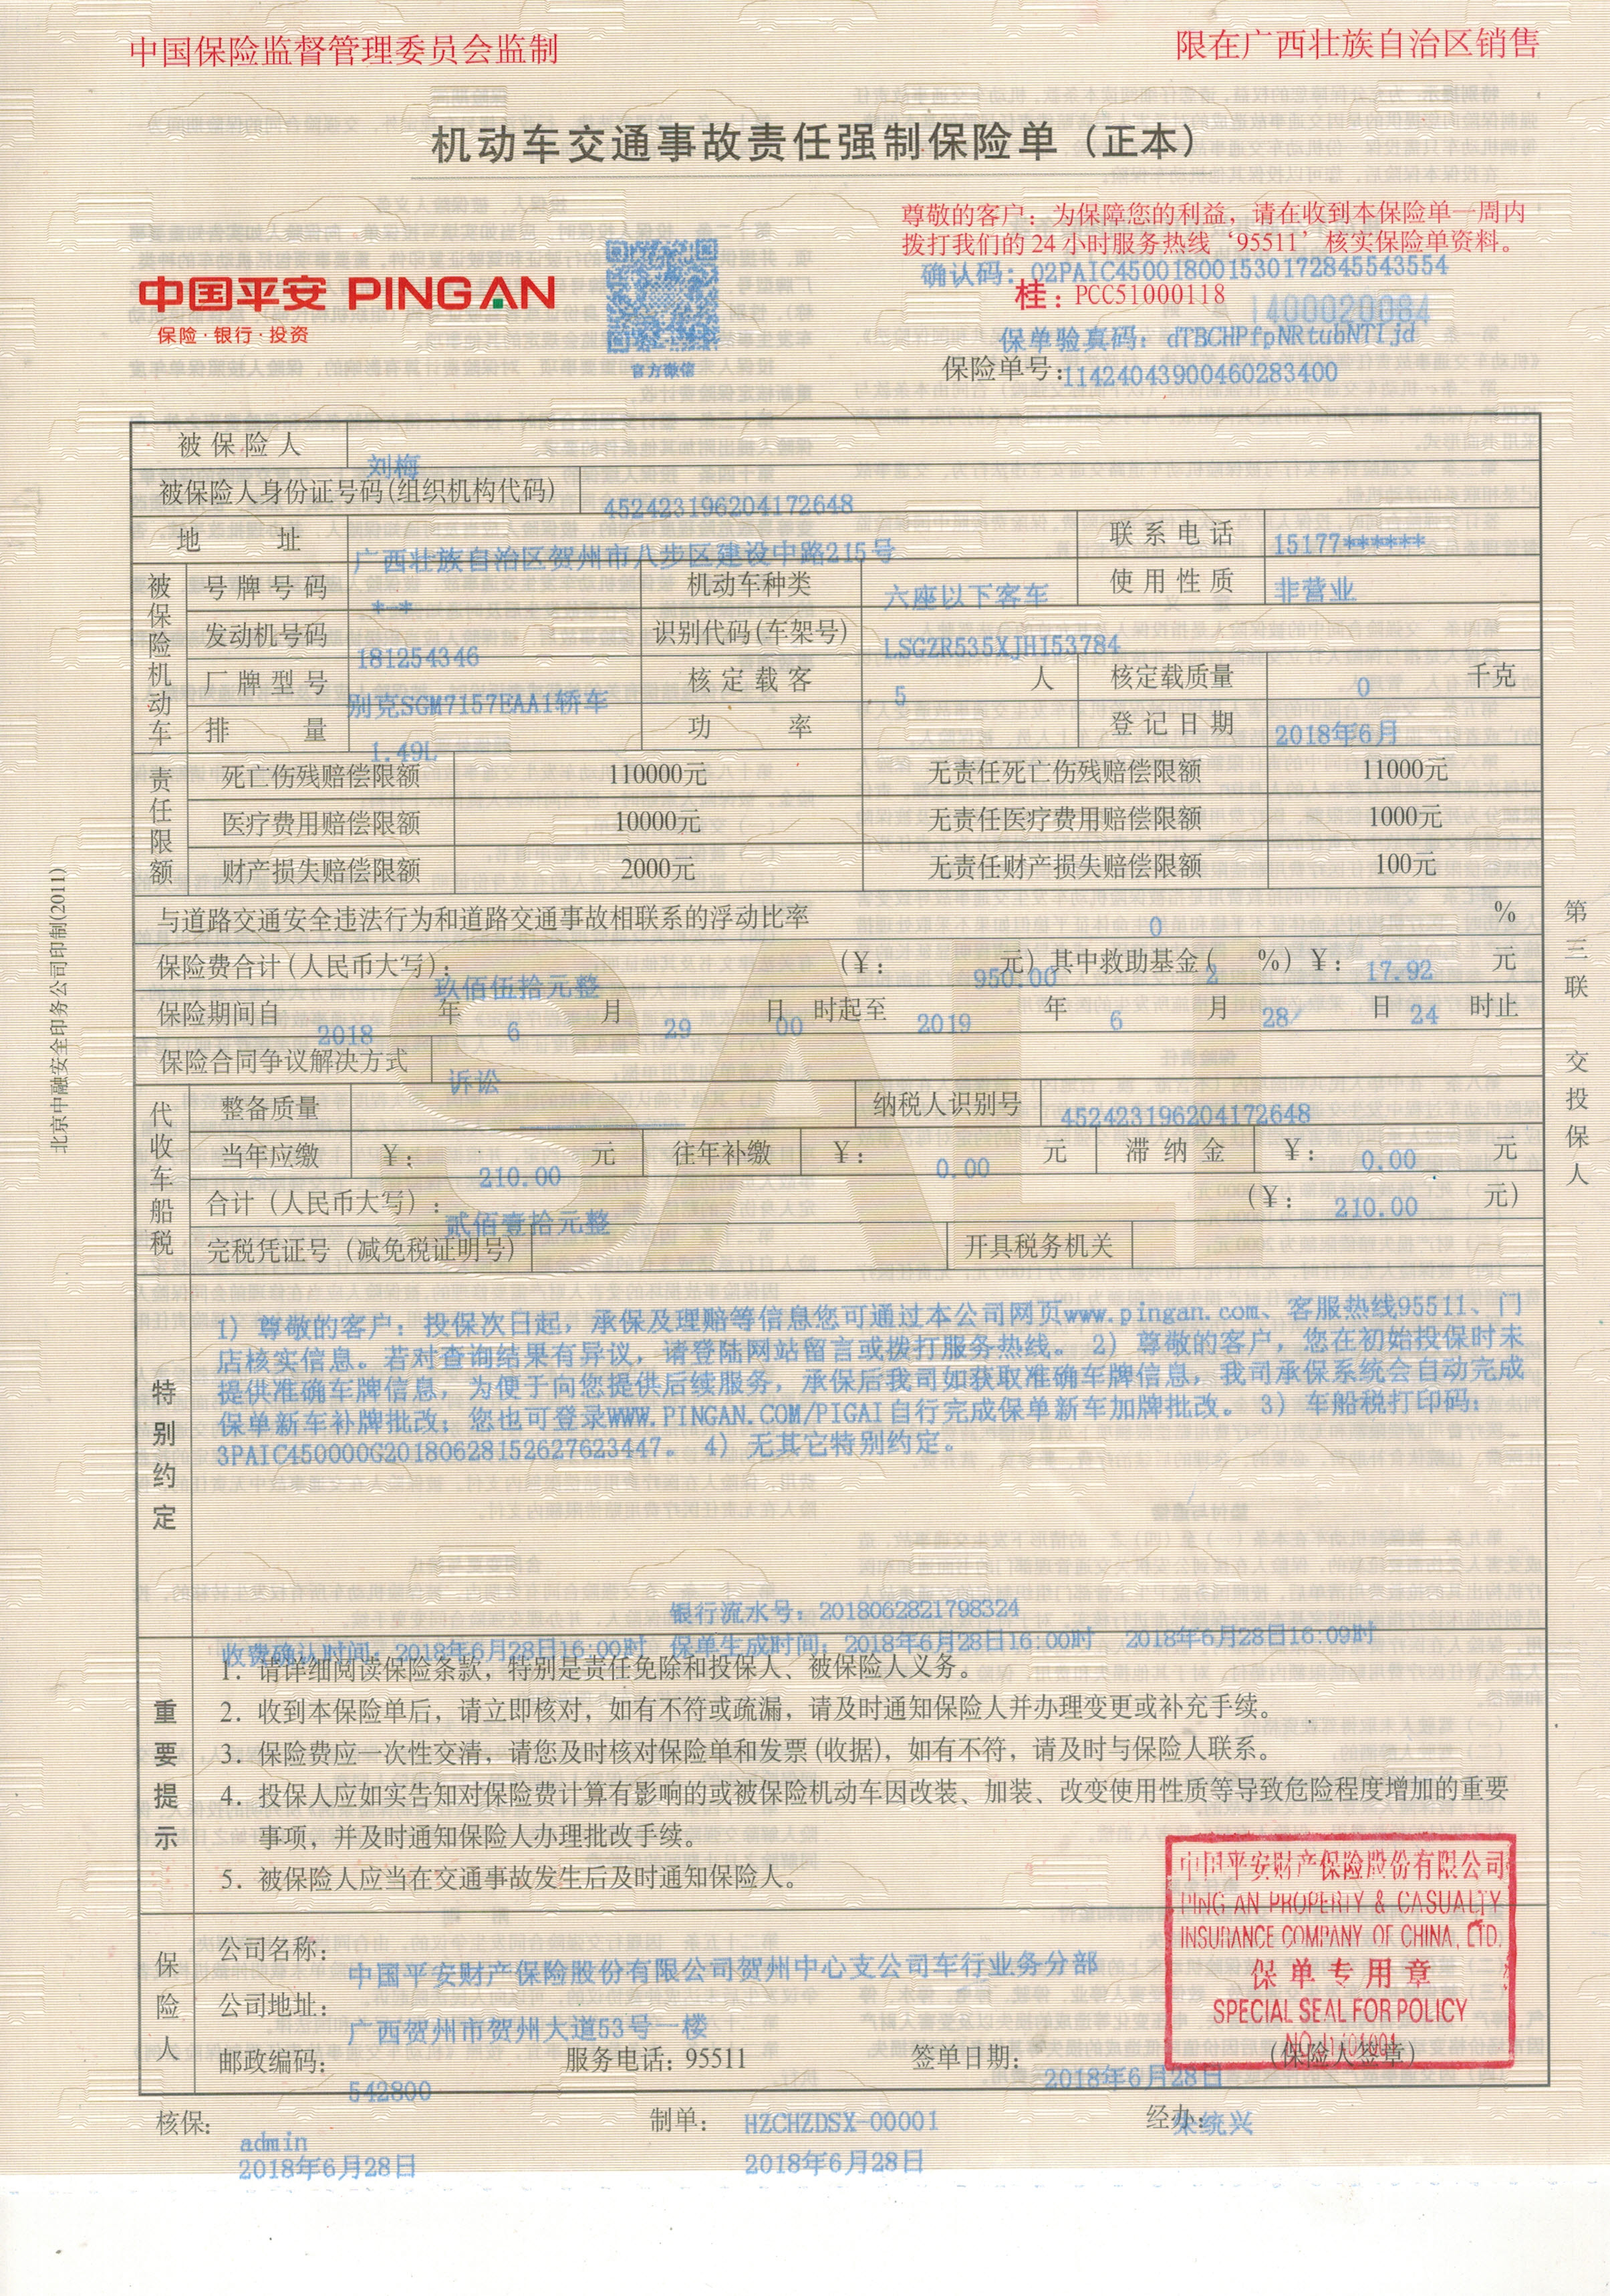 中国保险监督管理委员会监制
限在广西壮族自治区销售
机动车交通事故责任强制保险单（正本）
尊敬的客户：为保障您的利益，请在收到本保险单一周内
拨打我们的 24 小时服务热线‘95511’核实保险单资料。
中国平安 PING AN
保险·银行·投资
官方微信
确认码：02PAIC450018001530172845543554
桂：PCC51000118
1400020084
保单验真码：dTBCHPfpNRtubNTIjd
保险单号：11424043900460283400
被保险人 刘梅
被保险人身份证号码(组织机构代码) 452423196204172648
地 址 广西壮族自治区贺州市八步区建设中路215号 联系电话 15177******
被保险机动车
号牌号码 *-* 机动车种类 六座以下客车 使用性质 非营业
发动机号码 181254346 识别代码(车架号) LSGZR535XJH153784
厂牌型号 别克SGM7157EAA1轿车 核定载客 5 人 核定载质量 0 千克
排 量 1.49L 功 率 登记日期 2018年6月
责任限额
死亡伤残赔偿限额 110000元 无责任死亡伤残赔偿限额 11000元
医疗费用赔偿限额 10000元 无责任医疗费用赔偿限额 1000元
财产损失赔偿限额 2000元 无责任财产损失赔偿限额 100元
与道路交通安全违法行为和道路交通事故相联系的浮动比率 0 %
保险费合计(人民币大写)： 玖佰伍拾元整 (￥： 950.00 元) 其中救助基金( 2 %) ￥： 17.92 元
保险期间自 2018 年 6 月 29 日 00 时起至 2019 年 6 月 28 日 24 时止
保险合同争议解决方式 诉讼
代收车船税
整备质量 纳税人识别号 452423196204172648
当年应缴 ￥： 210.00 元 往年补缴 ￥： 0.00 元 滞纳金 ￥： 0.00 元
合计（人民币大写）： 贰佰壹拾元整 (￥： 210.00 元)
完税凭证号（减免税证明号） 开具税务机关
特别约定
1) 尊敬的客户：投保次日起，承保及理赔等信息您可通过本公司网页www.pingan.com、客服热线95511、门
店核实信息。若对查询结果有异议，请登陆网站留言或拨打服务热线。 2) 尊敬的客户，您在初始投保时未
提供准确车牌信息，为便于向您提供后续服务，承保后我司如获取准确车牌信息，我司承保系统会自动完成
保单新车补牌批改；您也可登录WWW.PINGAN.COM/PIGAI自行完成保单新车加牌批改。 3) 车船税打印码：
3PAIC450000G20180628152627623447。 4) 无其它特别约定。
银行流水号：2018062821798324
收费确认时间：2018年6月28日16:00时 保单生成时间：2018年6月28日16:00时 2018年6月28日16:09时
重要提示
1. 请详细阅读保险条款，特别是责任免除和投保人、被保险人义务。
2. 收到本保险单后，请立即核对，如有不符或疏漏，请及时通知保险人并办理变更或补充手续。
3. 保险费应一次性交清，请您及时核对保险单和发票(收据)，如有不符，请及时与保险人联系。
4. 投保人应如实告知对保险费计算有影响的或被保险机动车因改装、加装、改变使用性质等导致危险程度增加的重要
事项，并及时通知保险人办理批改手续。
5. 被保险人应当在交通事故发生后及时通知保险人。
保险人
公司名称： 中国平安财产保险股份有限公司贺州中心支公司车行业务分部
公司地址： 广西贺州市贺州大道53号一楼
邮政编码： 542800 服务电话：95511 签单日期： 2018年6月28日 (保险人签章)
中国平安财产保险股份有限公司
PING AN PROPERTY & CASUALTY
INSURANCE COMPANY OF CHINA, LTD.
保单专用章
SPECIAL SEAL FOR POLICY
核保： admin 2018年6月28日
制单： HZCHZDSX-00001 2018年6月28日
经办： 统兴
第三联 交投保人
北京中融安全印务公司印制(2011)
SALI